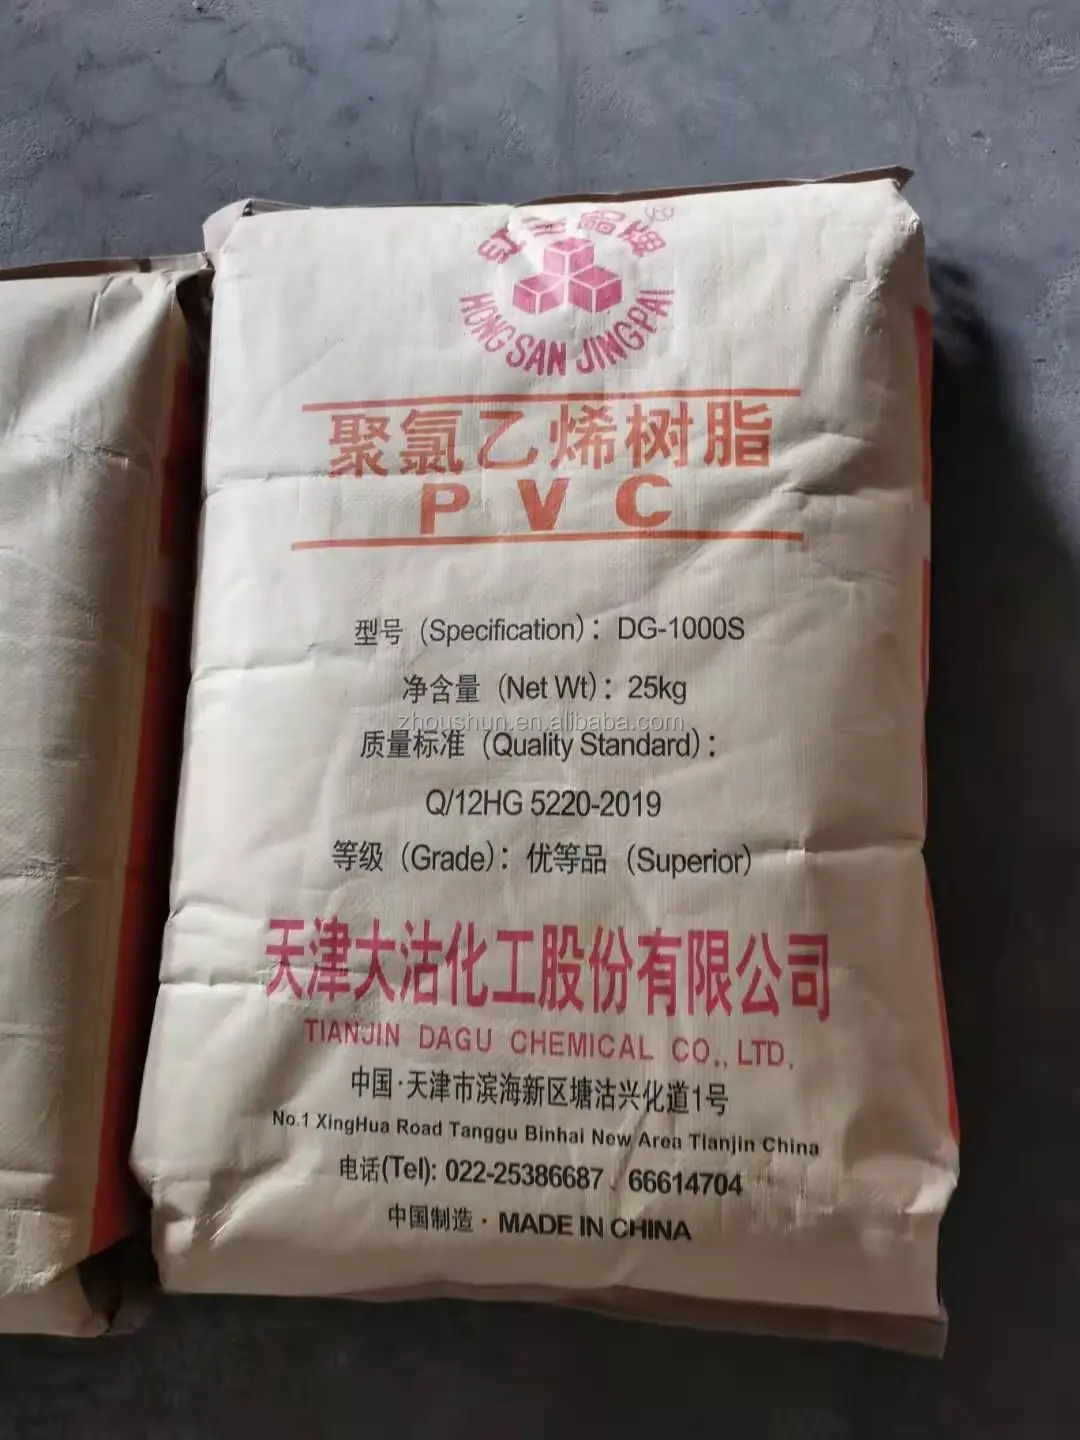 红三晶牌 ®
HONG SAN JINGPAI
聚氯乙烯树脂
PVC
型号（Specification）：DG-1000S
净含量（Net Wt）：25kg
zhoushun.en.alibaba.com
质量标准（Quality Standard）：
Q/12HG 5220-2019
等级（Grade）：优等品（Superior）
天津大沽化工股份有限公司
TIANJIN DAGU CHEMICAL CO., LTD.
中国·天津市滨海新区塘沽兴化道1号
No.1 XingHua Road Tanggu Binhai New Area Tianjin China
电话(Tel): 022-25386687、66614704
中国制造·MADE IN CHINA